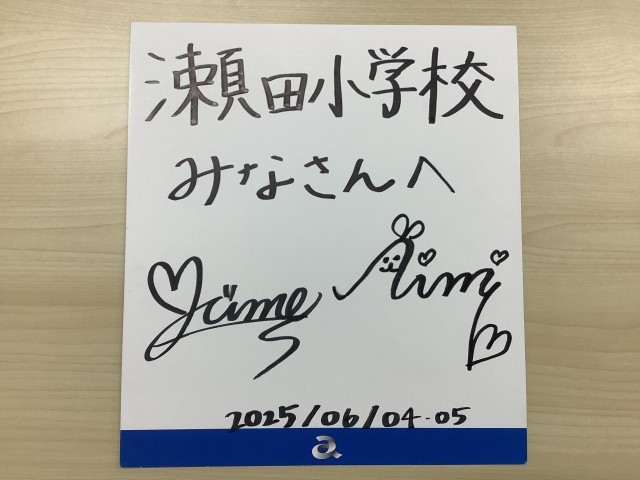 瀬田小学校
みなさんへ
Jaime Aimi
2025/06/04-05
a